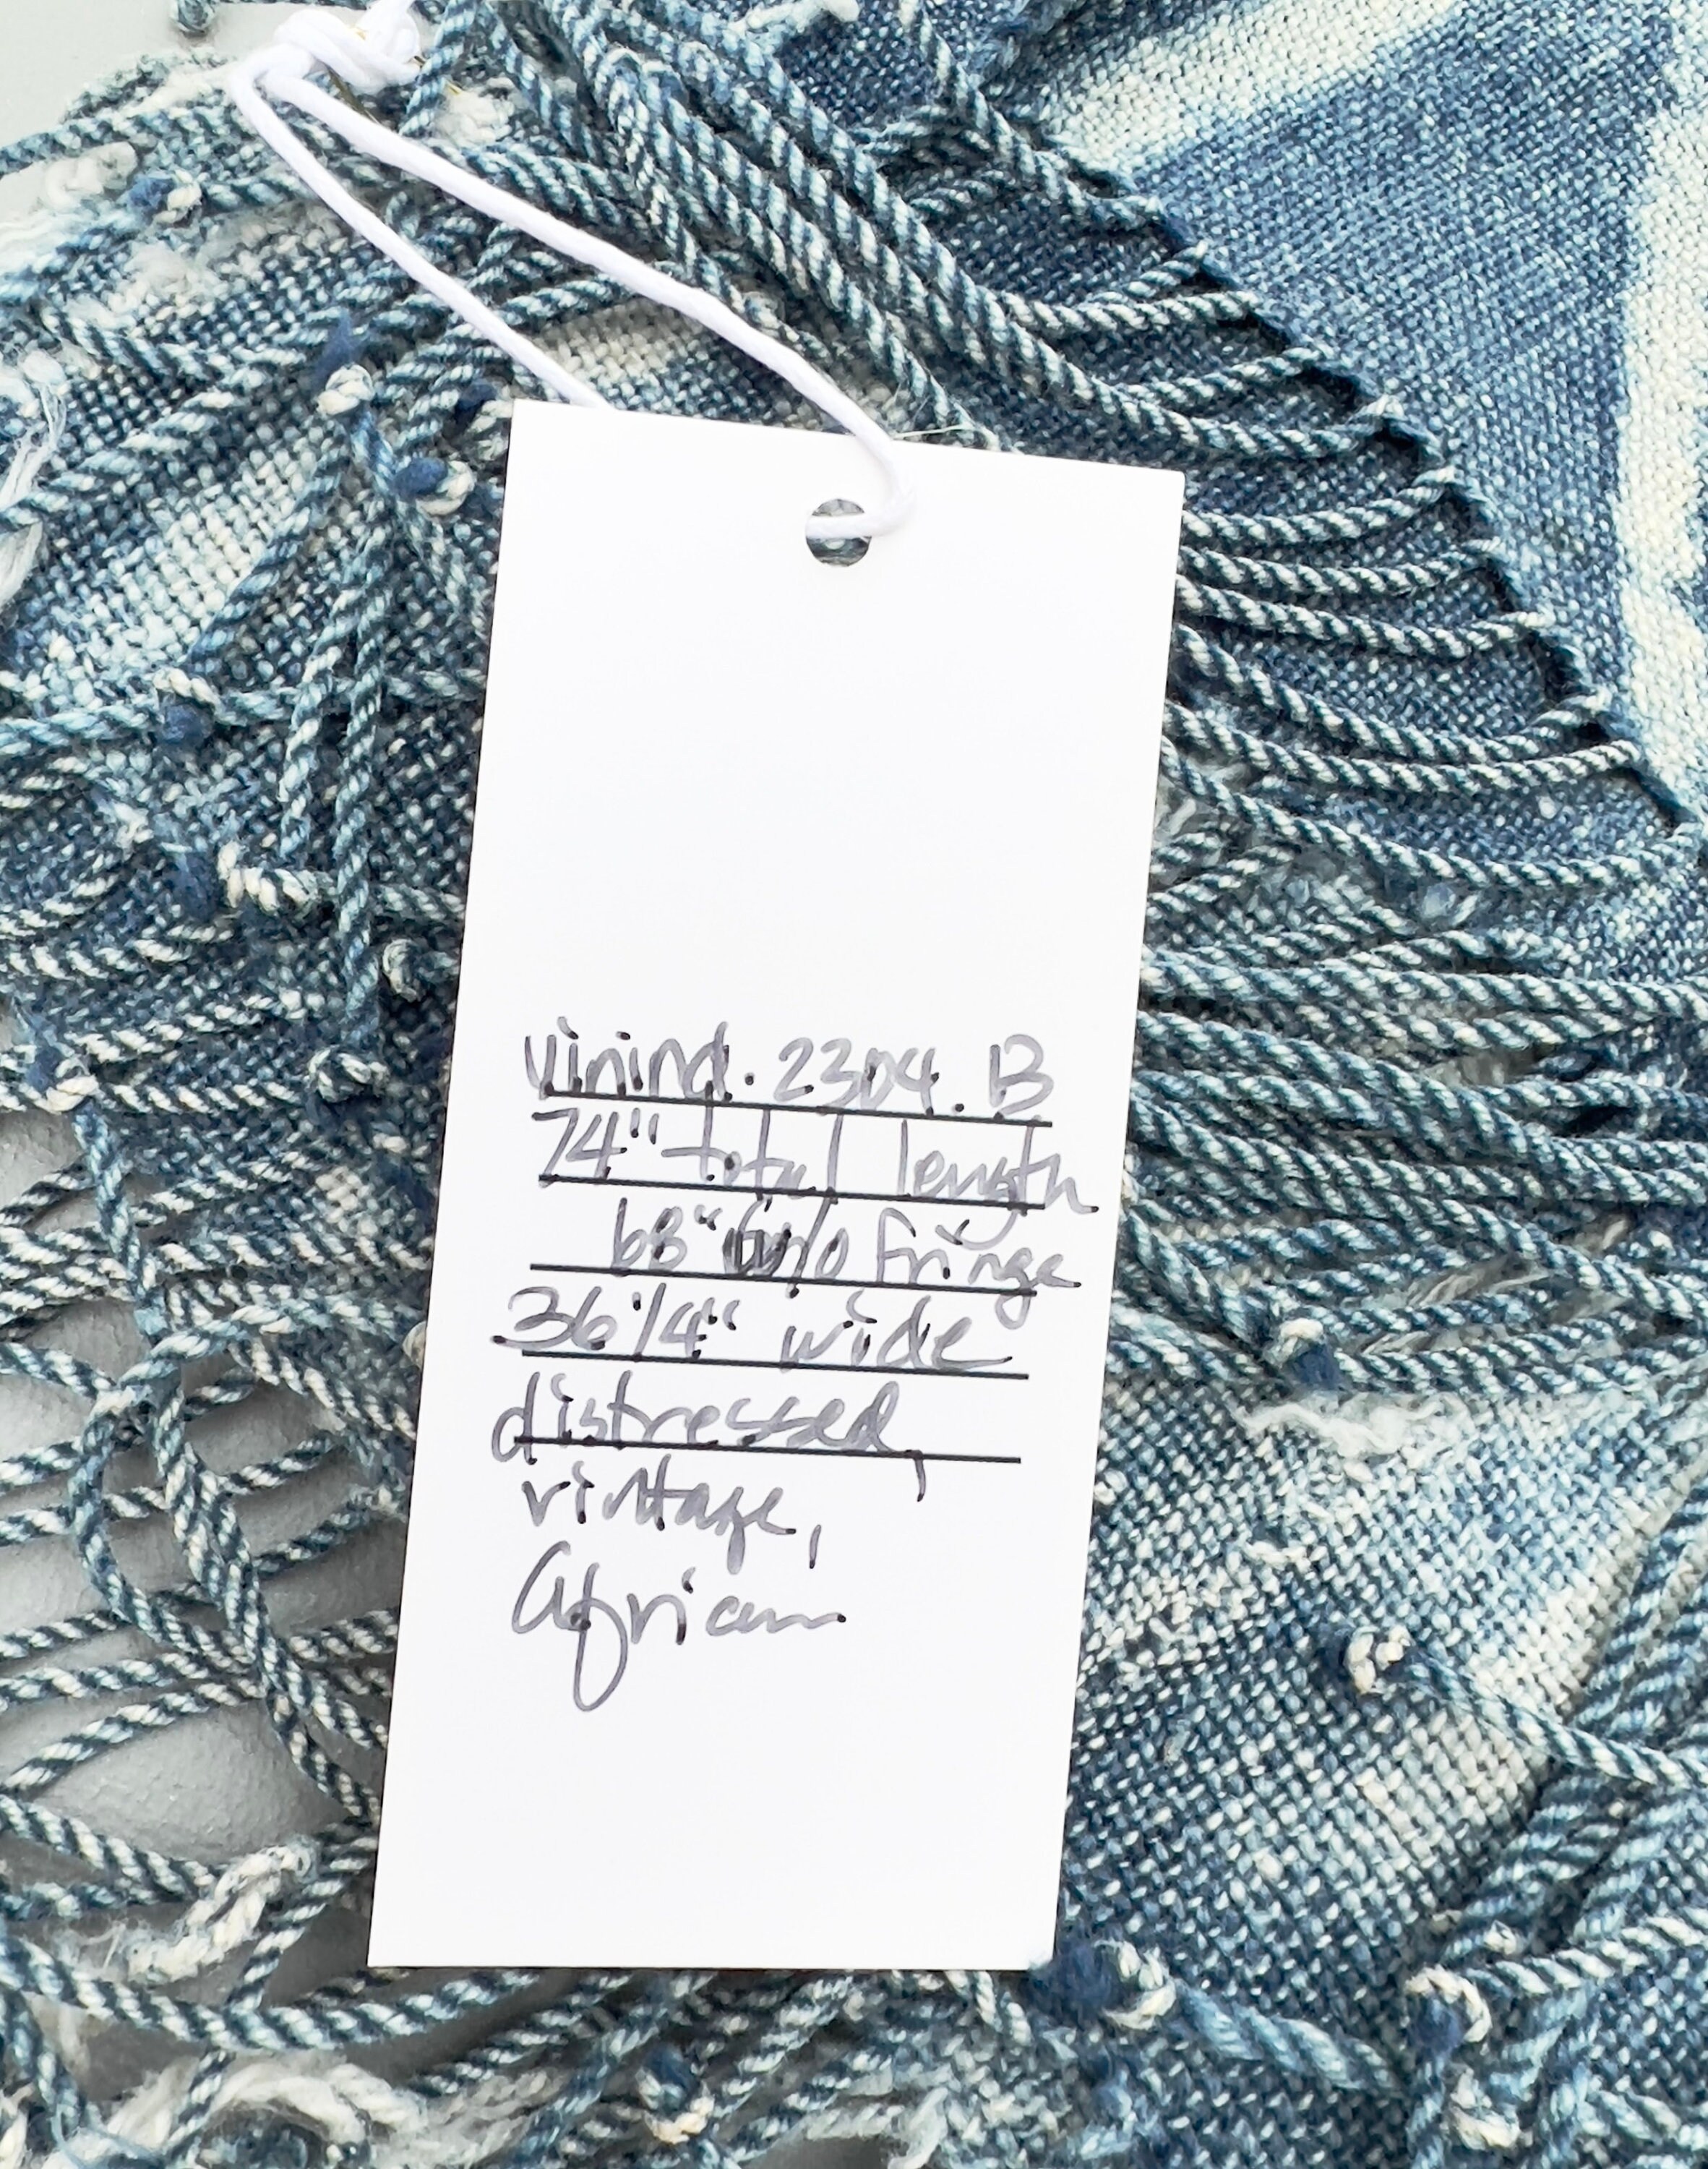 vining. 2304. B
74" total length
68" w/o fringe
36 1/4" wide
distressed,
vintage,
African